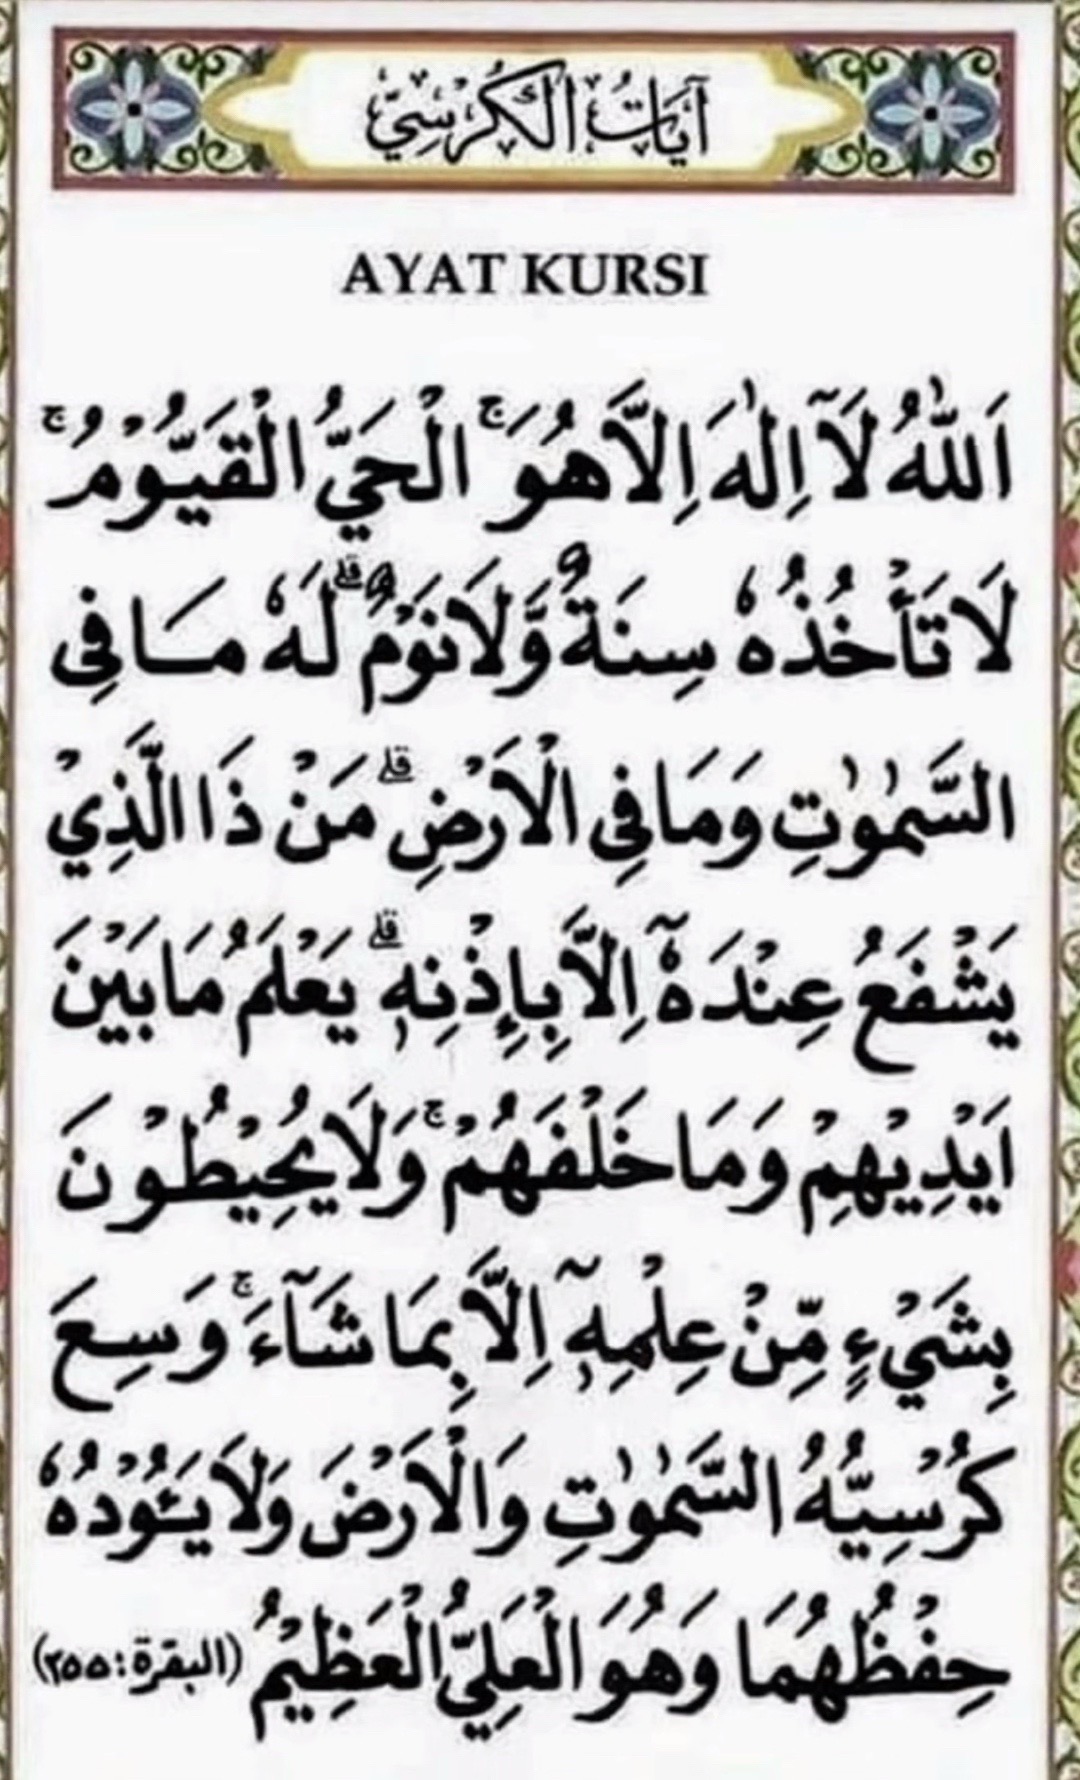 آيَاتُ الْكُرْسِيّ
AYAT KURSI
اَللّٰهُ لَآ اِلٰهَ اِلَّا هُوَ ۚ اَلْحَيُّ الْقَيُّوْمُ ۚ
لَا تَأْخُذُهٗ سِنَةٌ وَّلَا نَوْمٌ ۗ لَهٗ مَا فِى
السَّمٰوٰتِ وَمَا فِى الْاَرْضِ ۗ مَنْ ذَا الَّذِيْ
يَشْفَعُ عِنْدَهٗٓ اِلَّا بِإِذْنِهٖ ۗ يَعْلَمُ مَا بَيْنَ
اَيْدِيْهِمْ وَمَا خَلْفَهُمْ ۚ وَلَا يُحِيْطُوْنَ
بِشَيْءٍ مِّنْ عِلْمِهٖٓ اِلَّا بِمَا شَآءَ ۚ وَسِعَ
كُرْسِيُّهُ السَّمٰوٰتِ وَالْاَرْضَ وَلَا يَـُٔوْدُهٗ
حِفْظُهُمَا وَهُوَ الْعَلِيُّ الْعَظِيْمُ (البقرة: ٢٥٥)